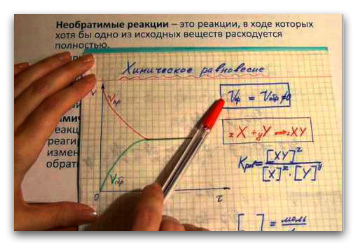 Необратимые реакции – это реакции, в ходе которых
хотя бы одно из исходных веществ расходуется
полностью.
Химическое равновесие
V
Vпр
Vпр = Vобр ≠ 0
xX + yY ⇌ XY
Kрав = [XY]² / [X]ˣ·[Y]ʸ
Vобр
0
τ
[ ] = моль
реакц
реаги
измен
обрат